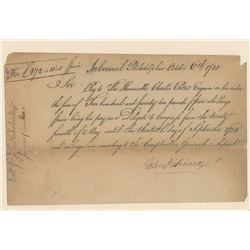 In Council Philadelphia October 6th 1785
Sir
Pay to The Honorable Charles Pettit Esquire or his order
the sum of Two hundred and twenty two pounds fifteen shillings
being his pay as a Delegate to Congress from the twenty
fourth of May until the thirtieth day of September 1785
and mileage according to the Comptroller Generals Report
John Dickinson